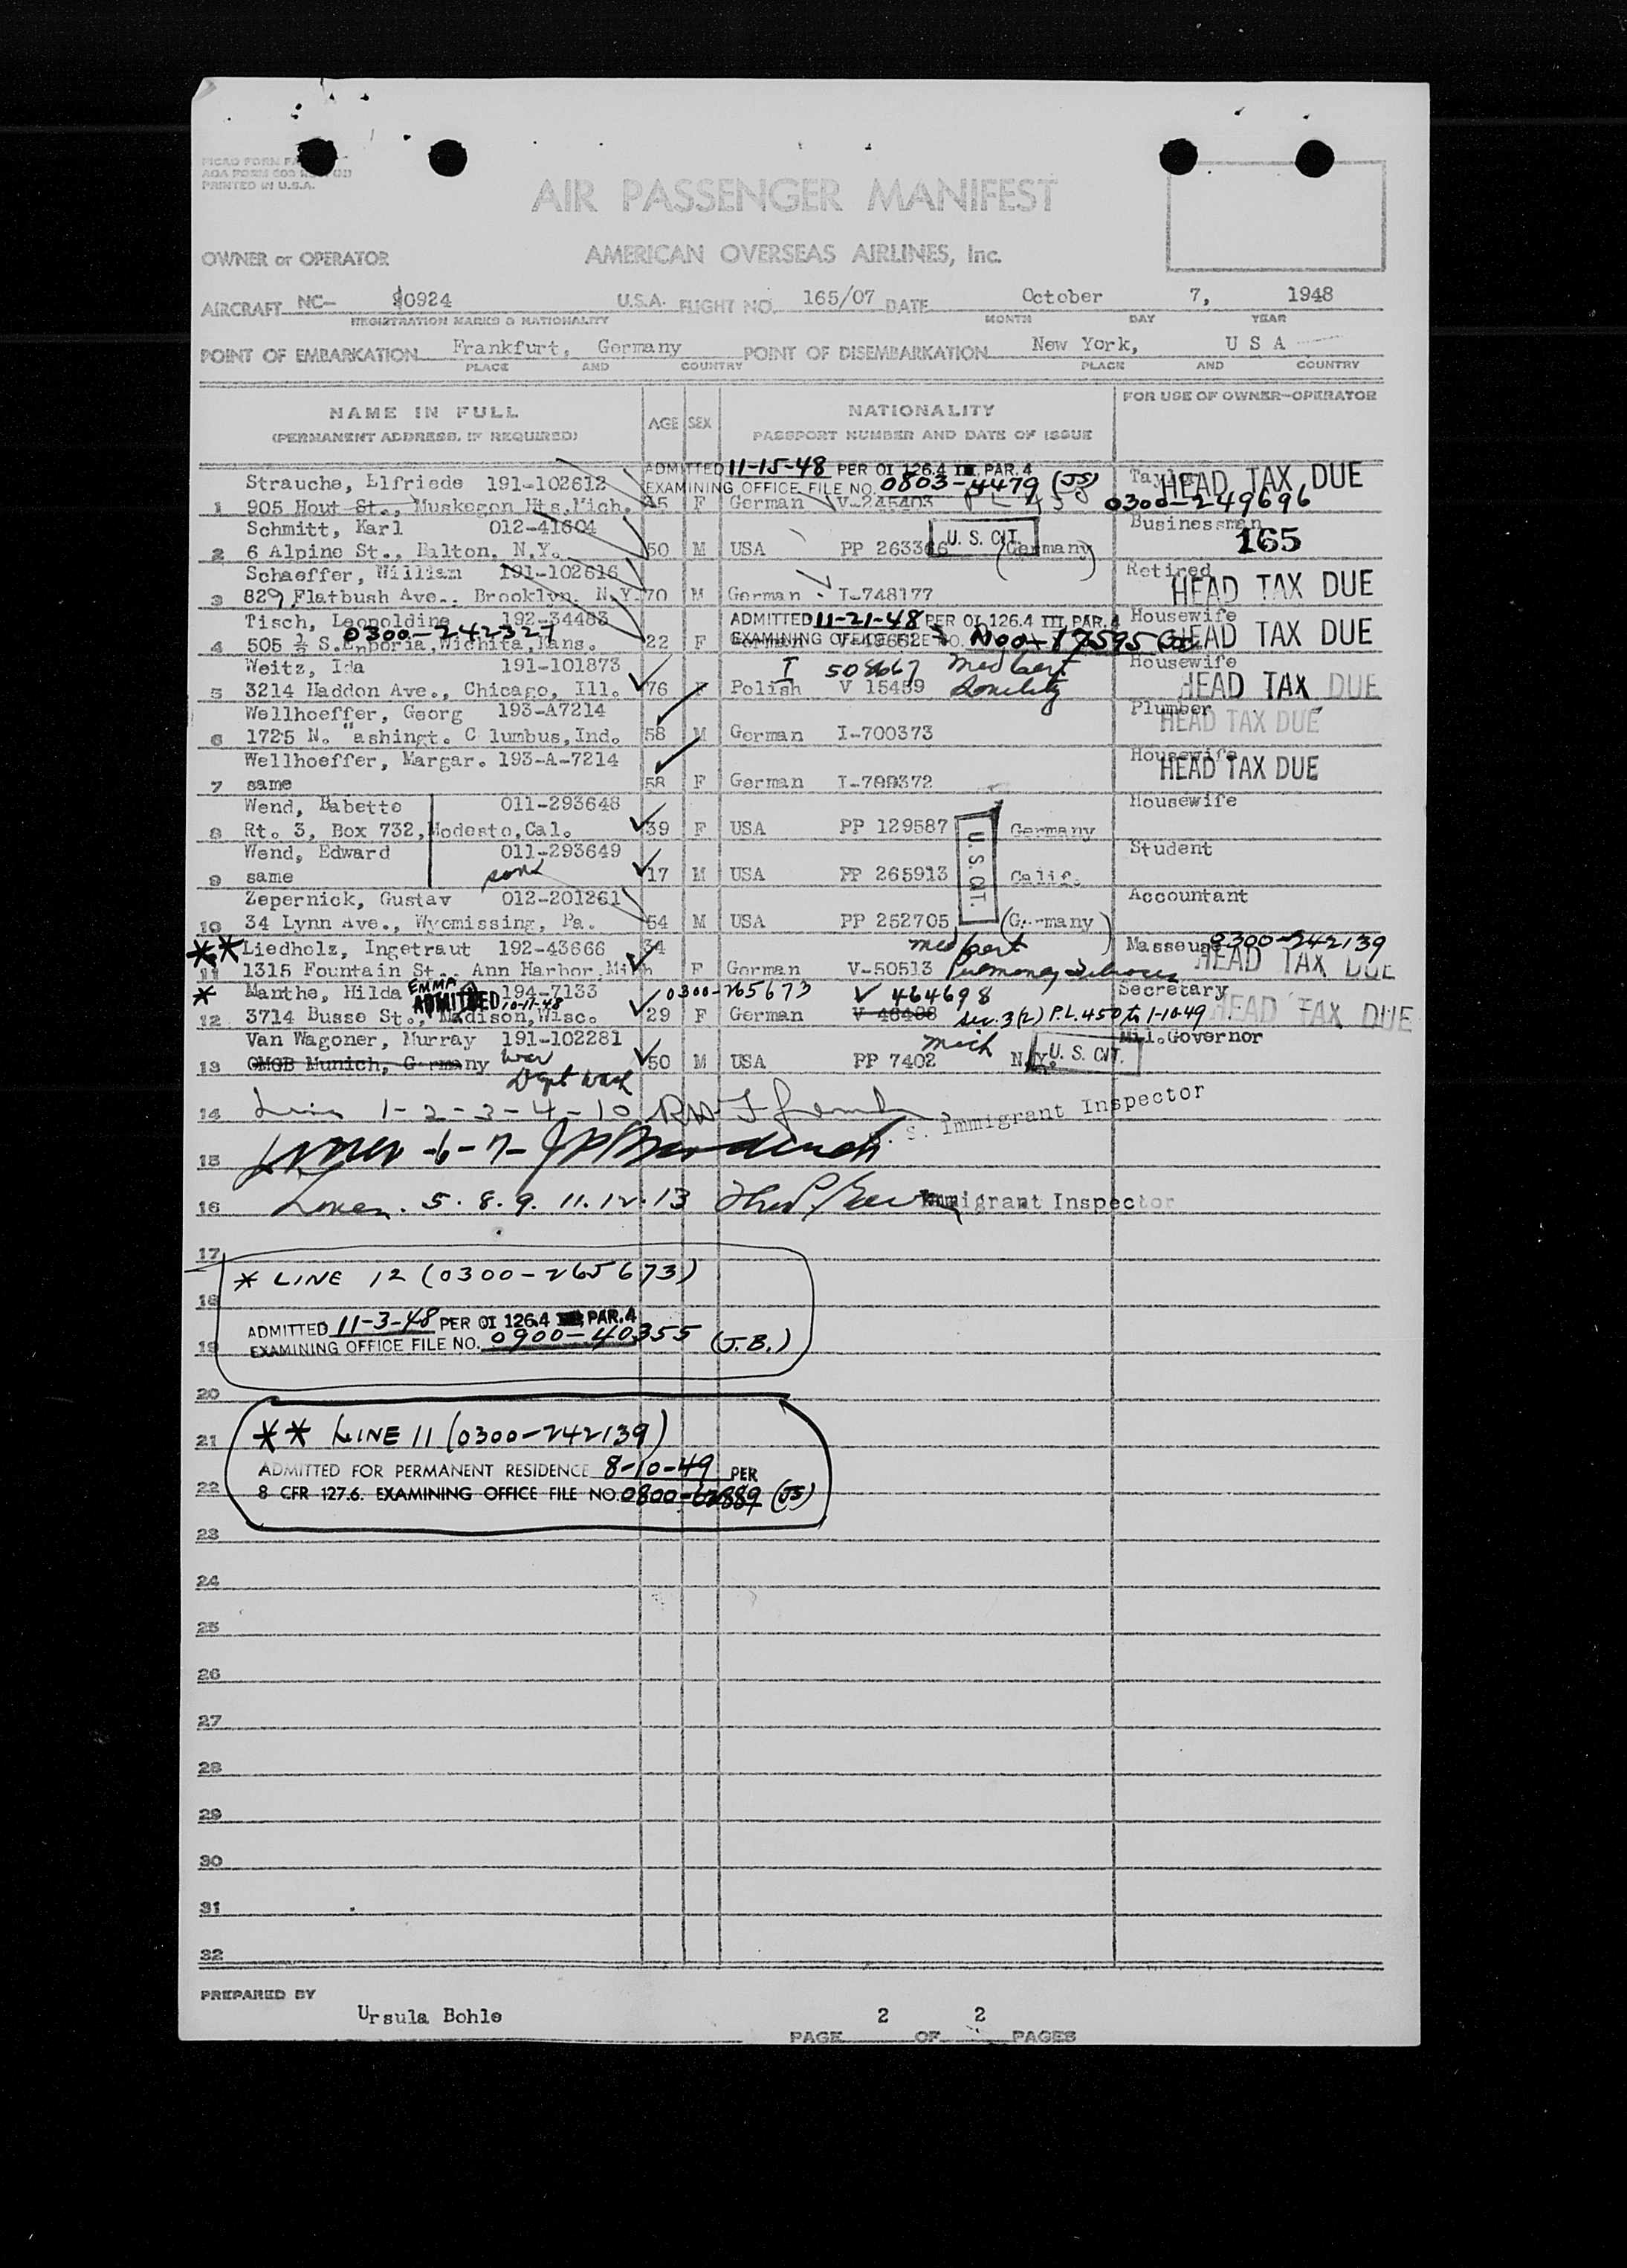 PRINTED IN U.S.A.
AIR PASSENGER MANIFEST
OWNER or OPERATOR AMERICAN OVERSEAS AIRLINES, Inc.
AIRCRAFT NC- 90924 U.S.A. FLIGHT NO. 165/07 DATE October 7, 1948
REGISTRATION MARKS & NATIONALITY MONTH DAY YEAR
POINT OF EMBARKATION Frankfurt, Germany POINT OF DISEMBARKATION New York, U S A
PLACE AND COUNTRY PLACE AND COUNTRY
NAME IN FULL AGE SEX NATIONALITY FOR USE OF OWNER-OPERATOR
(PERMANENT ADDRESS, IF REQUIRED) PASSPORT NUMBER AND DATE OF ISSUE
ADMITTED 11-15-48 PER OI 126.4 III, PAR. 4
Strauche, Elfriede 191-102612 EXAMINING OFFICE FILE NO. 0803-4479 (JS) HEAD TAX DUE
1 905 Hout St., Muskegon Hts. Mich. 45 F German V-245403 0300-249696
Schmitt, Karl 012-41604 U. S. CIT. Businessman
2 6 Alpine St., N.Y. 50 M USA PP 263366 (Germany) 165
Schaeffer, William 191-102616 Retired
3 829 Flatbush Ave., Brooklyn, N.Y. 70 M German I-748177 HEAD TAX DUE
Tisch, Leopoldine 192-34483 ADMITTED 11-21-48 PER OI 126.4 III, PAR. 4 Housewife
0300-242327 EXAMINING OFFICE FILE NO. (JS)
4 505 ½ S.Emporia, Wichita, Kans. 22 F German HEAD TAX DUE
Weitz, Ida 191-101873 I 508667 Med Cert Housewife
5 3214 Haddon Ave., Chicago, Ill. 76 F Polish V 15459 Senility HEAD TAX DUE
Wellhoeffer, Georg 193-A7214 Plumber
6 1725 N. "ashingt. C lumbus, Ind. 58 M German I-700373 HEAD TAX DUE
Wellhoeffer, Margar. 193-A-7214 Housewife
7 same 58 F German HEAD TAX DUE
Wend, Babette 011-293648 Housewife
8 Rt. 3, Box 732, Modesto, Cal. 39 F USA PP 129587 U.S. CIT. Germany
Wend, Edward 011-293649 Student
9 same son 17 M USA PP 265913 Calif.
Zepernick, Gustav 012-201261 Accountant
10 34 Lynn Ave., Wyomissing, Pa. 54 M USA PP 252705 (Germany)
** Liedholz, Ingetraut 192-43666 34 med cert Masseuse 0300-242139
11 1315 Fountain St., Ann Harbor, Mich F German V-50513 HEAD TAX DUE
* Manthe, Hilda EMMA 194-7133 0300-265673 V 464698 Secretary
ADMITTED 10-11-48
12 3714 Busse St., Madison, Wisc. 29 F German Sec. 3(2) P.L. 450 to 1-10-49 HEAD TAX DUE
Van Wagoner, Murray 191-102281 Mich Mil.Governor
13 OMGB Munich, Germany War Dept Wash 50 M USA PP 7402 N.Y. U. S. CIT.
14 Lines 1-2-3-4-10 U. S. Immigrant Inspector
15 Lines -6-7-
16 Lines. 5. 8. 9. 11. 12. 13 Immigrant Inspector
17
* LINE 12 (0300-265673)
18
ADMITTED 11-3-48 PER OI 126.4 PAR. 4
19 EXAMINING OFFICE FILE NO. 0900-40355 (J.B.)
20
21 ** LINE 11 (0300-242139)
ADMITTED FOR PERMANENT RESIDENCE 8-10-49 PER
22 8 CFR 127.6. EXAMINING OFFICE FILE NO. (JS)
23
24
25
26
27
28
29
30
31
32
PREPARED BY
Ursula Bohle
PAGE 2 OF 2 PAGES